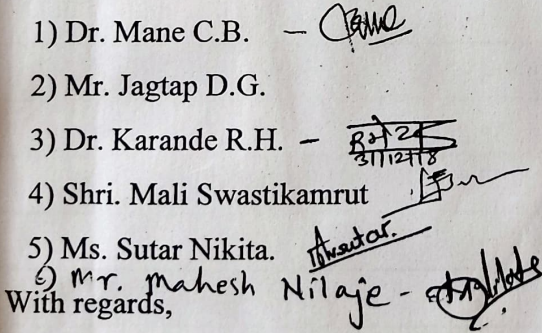 1) Dr. Mane C.B. - Mane
2) Mr. Jagtap D.G.
3) Dr. Karande R.H. -
31/12/18
4) Shri. Mali Swastikamrut
5) Ms. Sutar Nikita.
6) Mr. Mahesh Nilaje -
With regards,